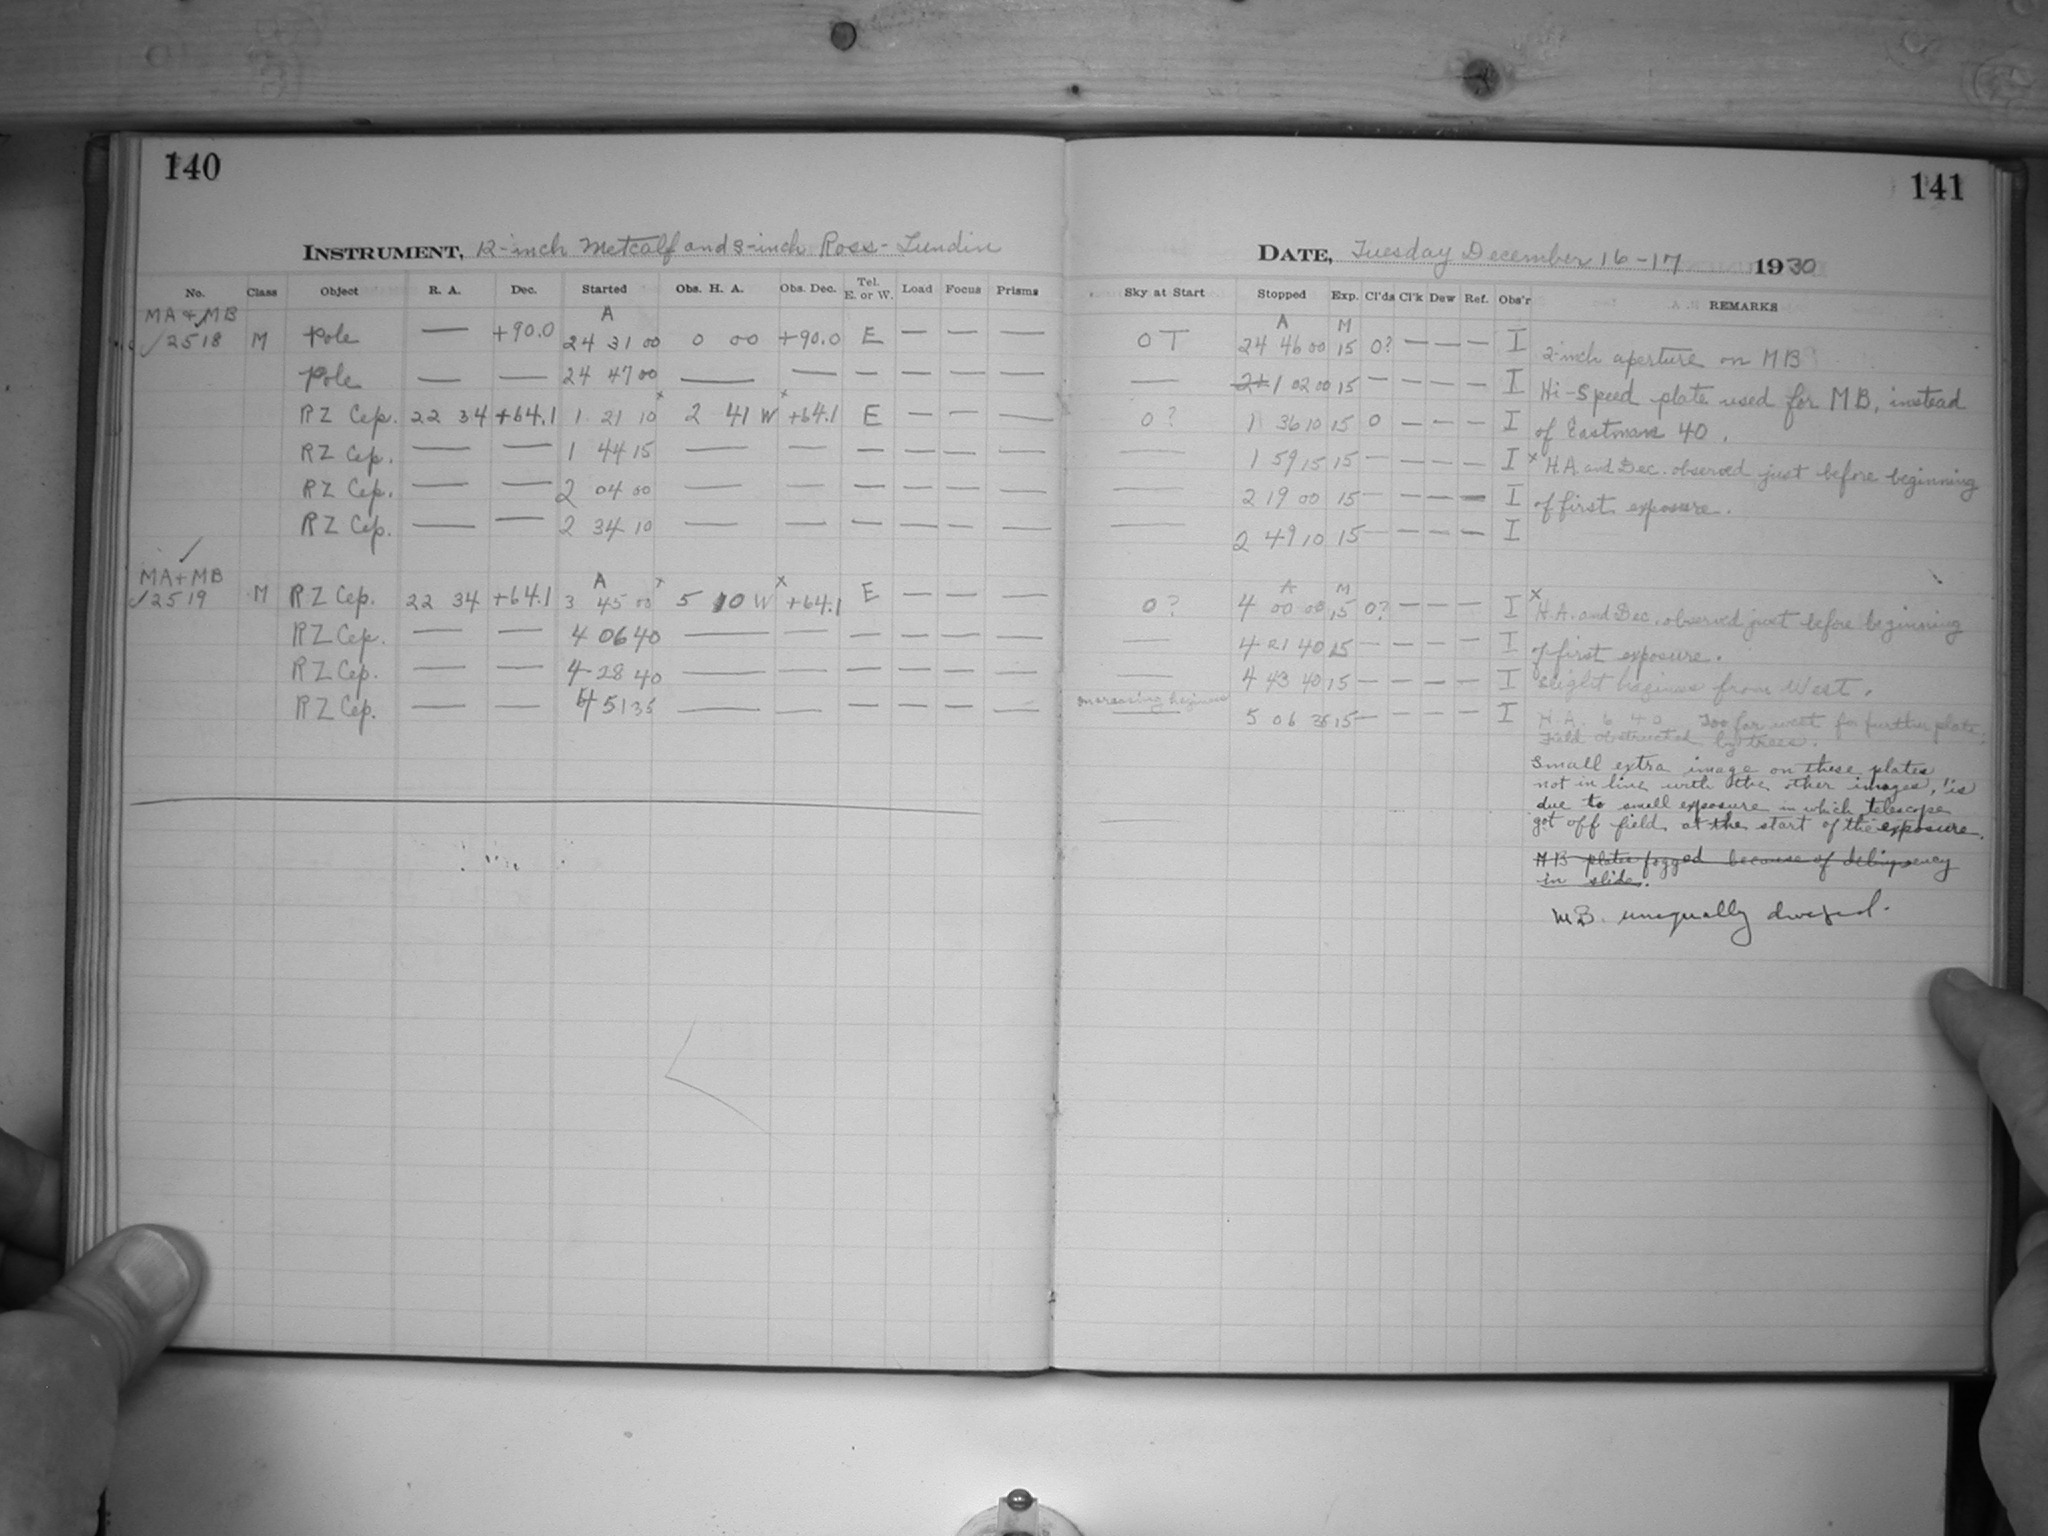 140
INSTRUMENT, 12-inch Metcalf and 3-inch Ross-Lundin
No. Class Object R. A. Dec. Started Obs. H. A. Obs. Dec. Tel. E. or W. Load Focus Prisms
MA & MB A
✓2518 M Pole — +90.0 24 31 00 0 00 +90.0 E — — —
Pole — — 24 47 00 — — — — — —
RZ Cep. 22 34 +64.1 1 21 10 x 2 41 W x +64.1 E — — —
RZ Cep. — — 1 44 15 — — — — — —
RZ Cep. — — 2 04 00 — — — — — —
RZ Cep. — — 2 34 10 — — — — — —
✓
MA + MB A
✓2519 M RZ Cep. 22 34 +64.1 3 45 00 x 5 10 W x +64.1 E — — —
RZ Cep. — — 4 06 40 — — — — — —
RZ Cep. — — 4 28 40 — — — — — —
RZ Cep. — — 4 51 35 — — — — — —
141
DATE, Tuesday December 16-17 1930
Sky at Start Stopped Exp. Cl'ds Cl'k Dew Ref. Obs'r REMARKS
A M
0 T 24 46 00 15 0? — — — I 2-inch aperture on MB
— 24 1 02 00 15 — — — — I Hi-Speed plate used for MB, instead
0? 1 36 10 15 0 — — — I of Eastman 40.
— 1 59 15 15 — — — — I x H.A. and Dec. observed just before beginning
— 2 19 00 15 — — — — I of first exposure.
— 2 49 10 15 — — — — I
A M
0? 4 00 00 15 0? — — — I x H.A. and Dec. observed just before beginning
— 4 21 40 15 — — — — I of first exposure.
— 4 43 40 15 — — — — I Slight haziness from West.
increasing haziness 5 06 35 15 — — — — I H.A. 6 40 Too far west for further plate.
Field obstructed by trees.
Small extra image on these plates
not in line with the other images, is
due to small exposure in which telescope
got off field at the start of the exposure.
MB plates fogged because of
in slide.
MB. unequally